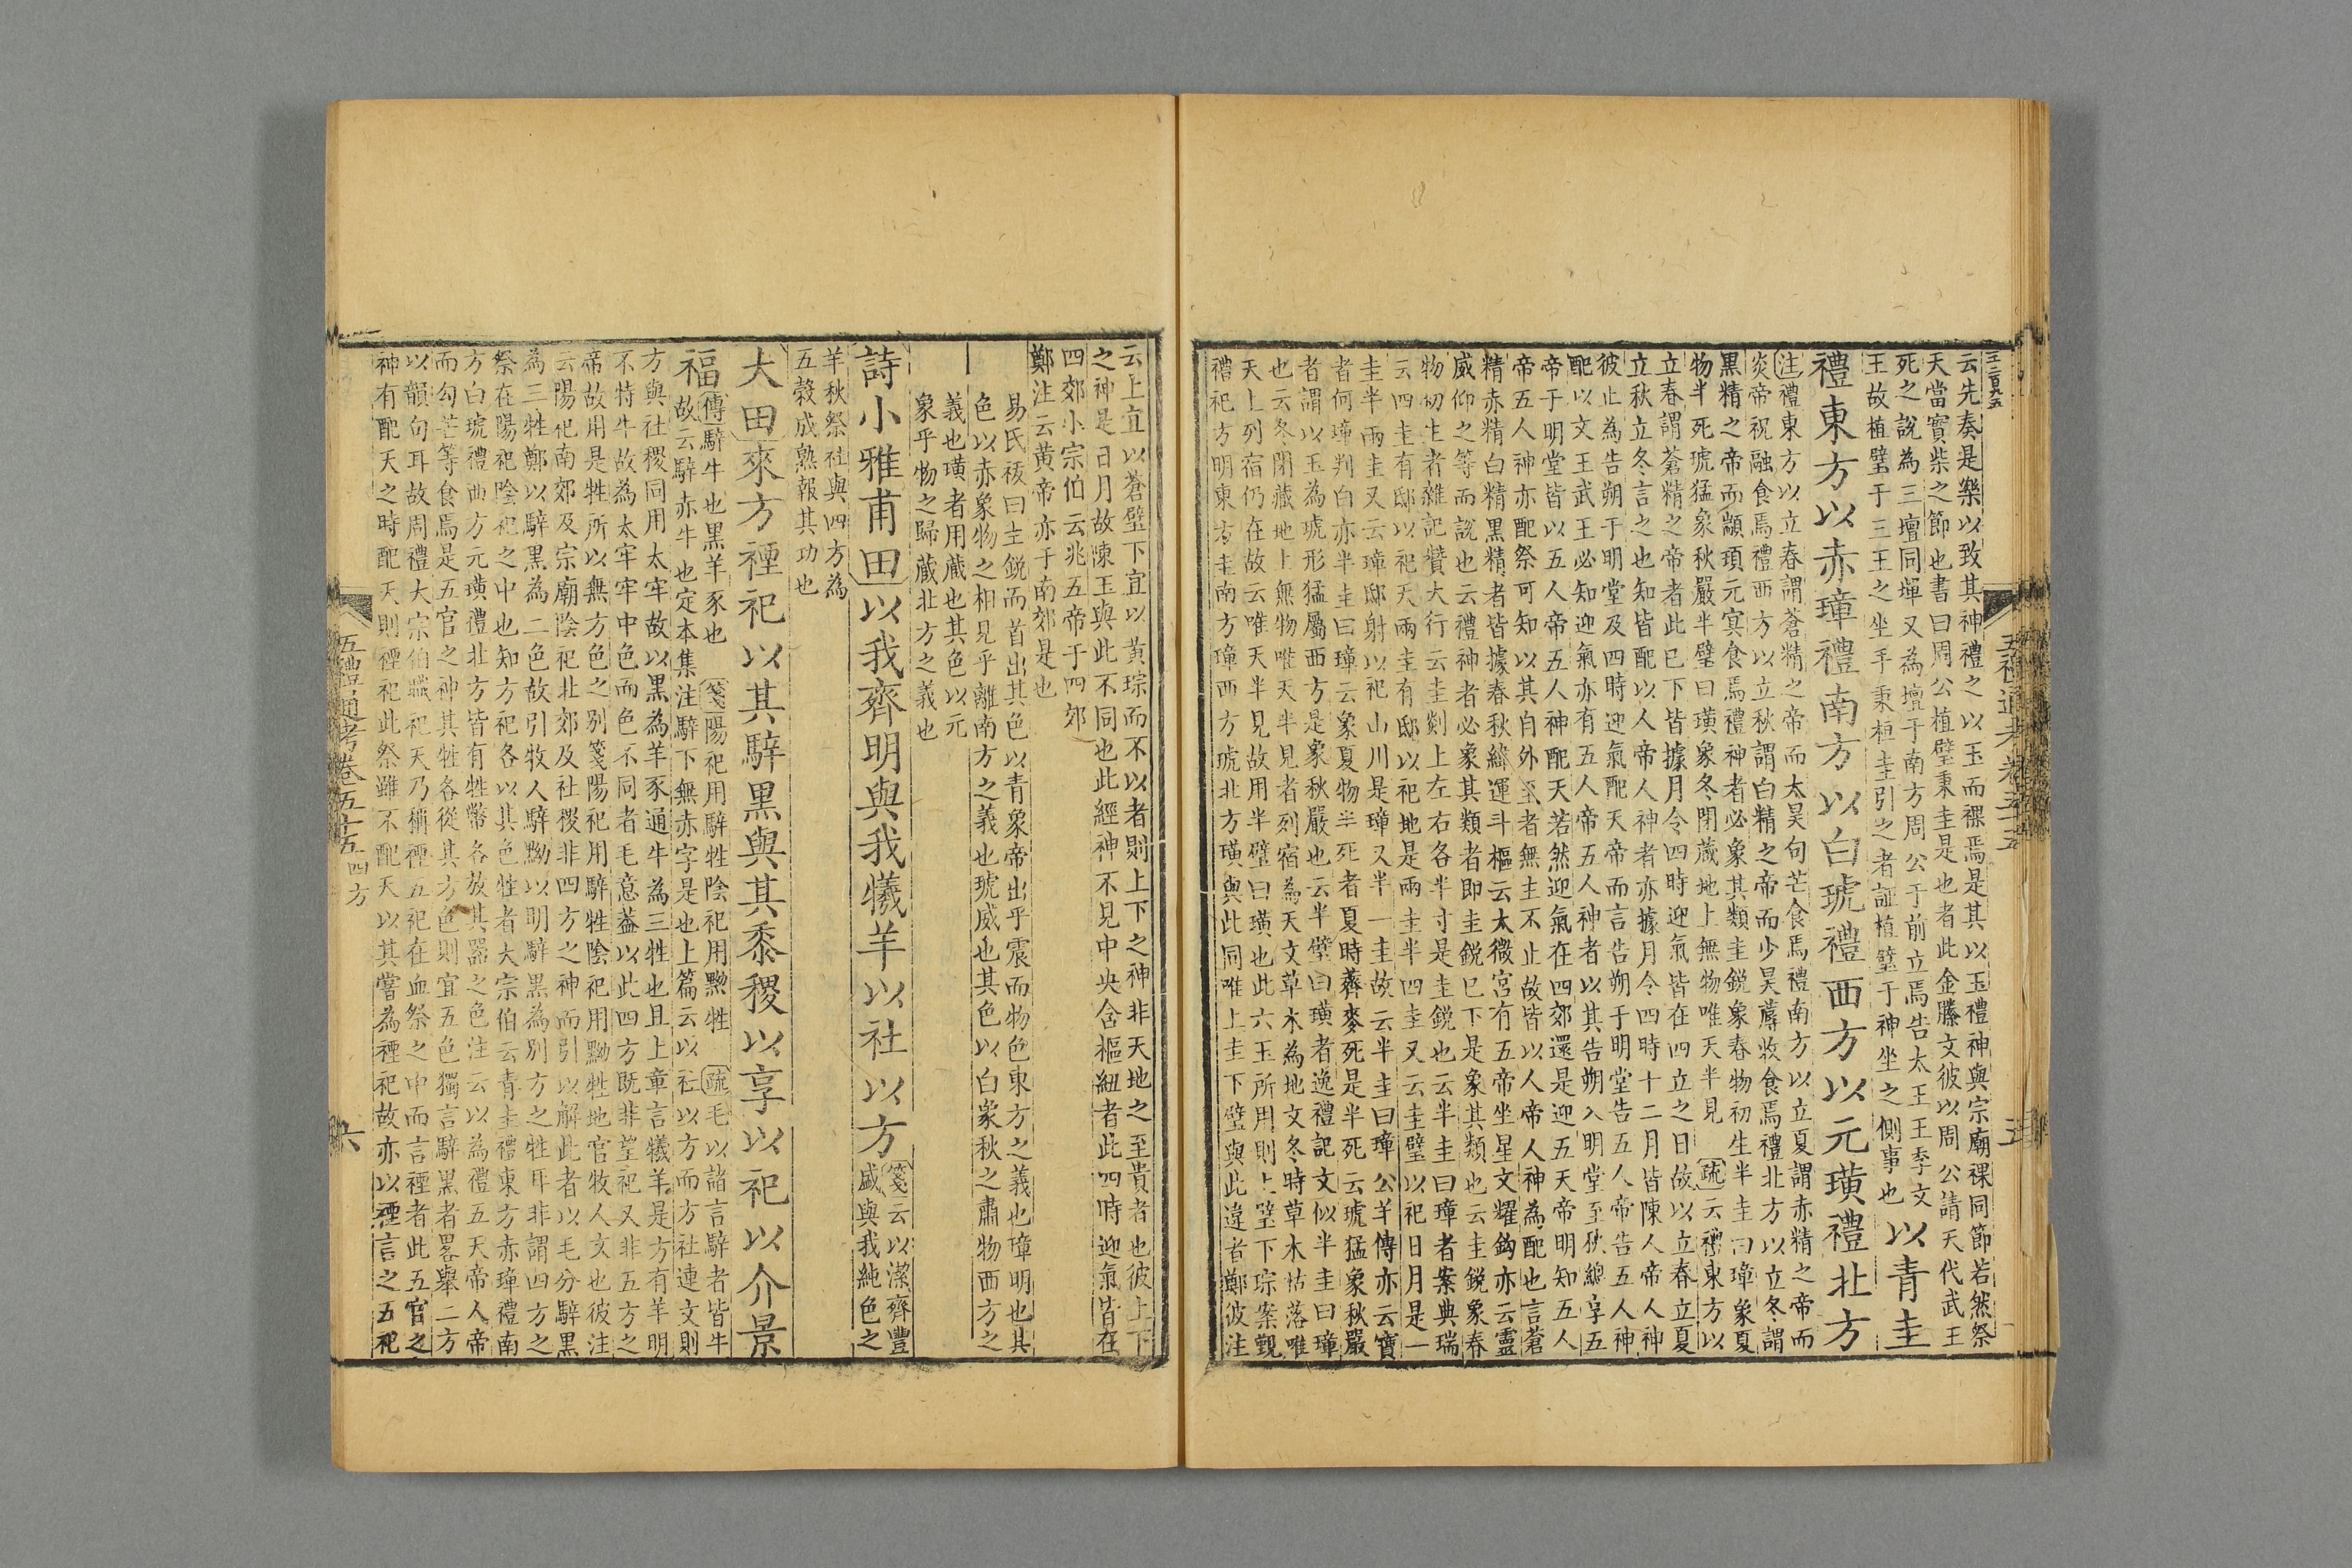 云先奏是樂以致其神禮之以玉而祼焉是其以玉禮神與宗廟祼同節若然祭
天當實柴之節也書曰周公植璧秉圭是也者此金縢文彼以周公請天代武王
死之說為三壇同墠又為壇于南方周公于前立焉告太王王季文
王故植璧于三王之坐手秉桓圭引之者証植璧于神坐之側事也
以青圭
禮東方以赤璋禮南方以白琥禮西方以元璜禮北方
注禮東方以立春謂蒼精之帝而太昊句芒食焉禮南方以立夏謂赤精之帝而
炎帝祝融食焉禮西方以立秋謂白精之帝而少昊蓐收食焉禮北方以立冬謂
黑精之帝而顓頊元冥食焉禮神者必象其類圭銳象春物初生半圭曰璋象夏
物半死琥猛象秋嚴半璧曰璜象冬閉藏地上無物唯天半見 疏云禮東方以
立春謂蒼精之帝者此已下皆據月令四時迎氣皆在四立之日故以立春立夏
立秋立冬言之也知皆配以人帝人神者亦據月令四時十二月皆陳人帝人神
彼止為告朔于明堂及四時迎氣配天帝而言告朔于明堂告五人帝告五人神
配以文王武王必知迎氣亦有五人帝五人神者以其告朔入明堂至秋總享五
帝于明堂皆以五人帝五人神配天若然迎氣在四郊還是迎五天帝明知五人
帝五人神亦配祭可知以其自外至者無主不止故皆以人帝人神為配也言蒼
精赤精白精黑精者皆據春秋緯運斗樞云太微宮有五帝坐星文耀鉤亦云靈
威仰之等而說也云禮神者必象其類者即圭銳已下是象其類也云圭銳象春
物初生者雜記贊大行云圭剡上左右各半寸是圭銳也云半圭曰璋者案典瑞
云四圭有邸以祀天兩圭有邸以祀地是兩圭半四圭又云圭璧以祀日月是一
圭半兩圭又云璋邸射以祀山川是璋又半一圭故云半圭曰璋公羊傳亦云寶
者何璋判白亦半圭曰璋云象夏物半死者夏時薺麥死是半死云琥猛象秋嚴
者謂以玉為琥形猛屬西方是象秋嚴也云半璧曰璜者逸禮記文似半圭曰璋
也云冬閉藏地上無物唯天半見者列宿為天文草木為地文冬時草木枯落唯
天上列宿仍在故云唯天半見故用半璧曰璜也此六玉所用則上璧下琮案覲
禮祀方明東方圭南方璋西方琥北方璜與此同唯上圭下璧與此違者鄭彼注
云上宜以蒼璧下宜以黃琮而不以者則上下之神非天地之至貴者也彼上下
之神是日月故陳玉與此不同也此經神不見中央含樞紐者此四時迎氣皆在
四郊小宗伯云兆五帝于四郊
鄭注云黃帝亦于南郊是也
易氏祓曰圭銳而首出其色以青象帝出乎震而物色東方之義也璋明也其
色以赤象物之相見乎離南方之義也琥威也其色以白象秋之肅物西方之
義也璜者用藏也其色以元
象乎物之歸藏北方之義也
詩小雅甫田以我齊明與我犧羊以社以方
箋云以潔齊豐
盛與我純色之
羊秋祭社與四方為
五穀成熟報其功也
大田來方禋祀以其騂黑與其黍稷以享以祀以介景
福
傳騂牛也黑羊豕也 箋陽祀用騂牲陰祀用黝牲 疏毛以諸言騂者皆牛
故云騂赤牛也定本集注騂下無赤字是也上篇云以社以方而方社連文則
方與社稷同用太牢故以黑為羊豕通牛為三牲也且上章言犧羊是方有羊明
不特牛故為太牢牢中色而色不同者毛意蓋以此四方既非望祀又非五方之
帝故用是牲所以無方色之別箋陽祀用騂牲陰祀用黝牲地官牧人文也彼注
云陽祀南郊及宗廟陰祀北郊及社稷非四方之神而引以解此者以毛分騂黑
為三牲鄭以騂黑為二色故引牧人騂黝以明騂黑為別方之牲耳非謂四方之
祭在陽祀陰祀之中也知方祀各以其色牲者大宗伯云青圭禮東方赤璋禮南
方白琥禮西方元璜禮北方皆有牲幣各放其器之色注云以為禮五天帝人帝
而勾芒等食焉是五官之神其牲各從其方色則宜五色獨言騂黑者畧舉二方
以韻句耳故周禮大宗伯職祀天乃稱禋五祀在血祭之中而言禋者此五官之
神有配天之時配天則禋祀此祭雖不配天以其嘗為禋祀故亦以禋言之五祀
五禮通考卷五十五 四方
六